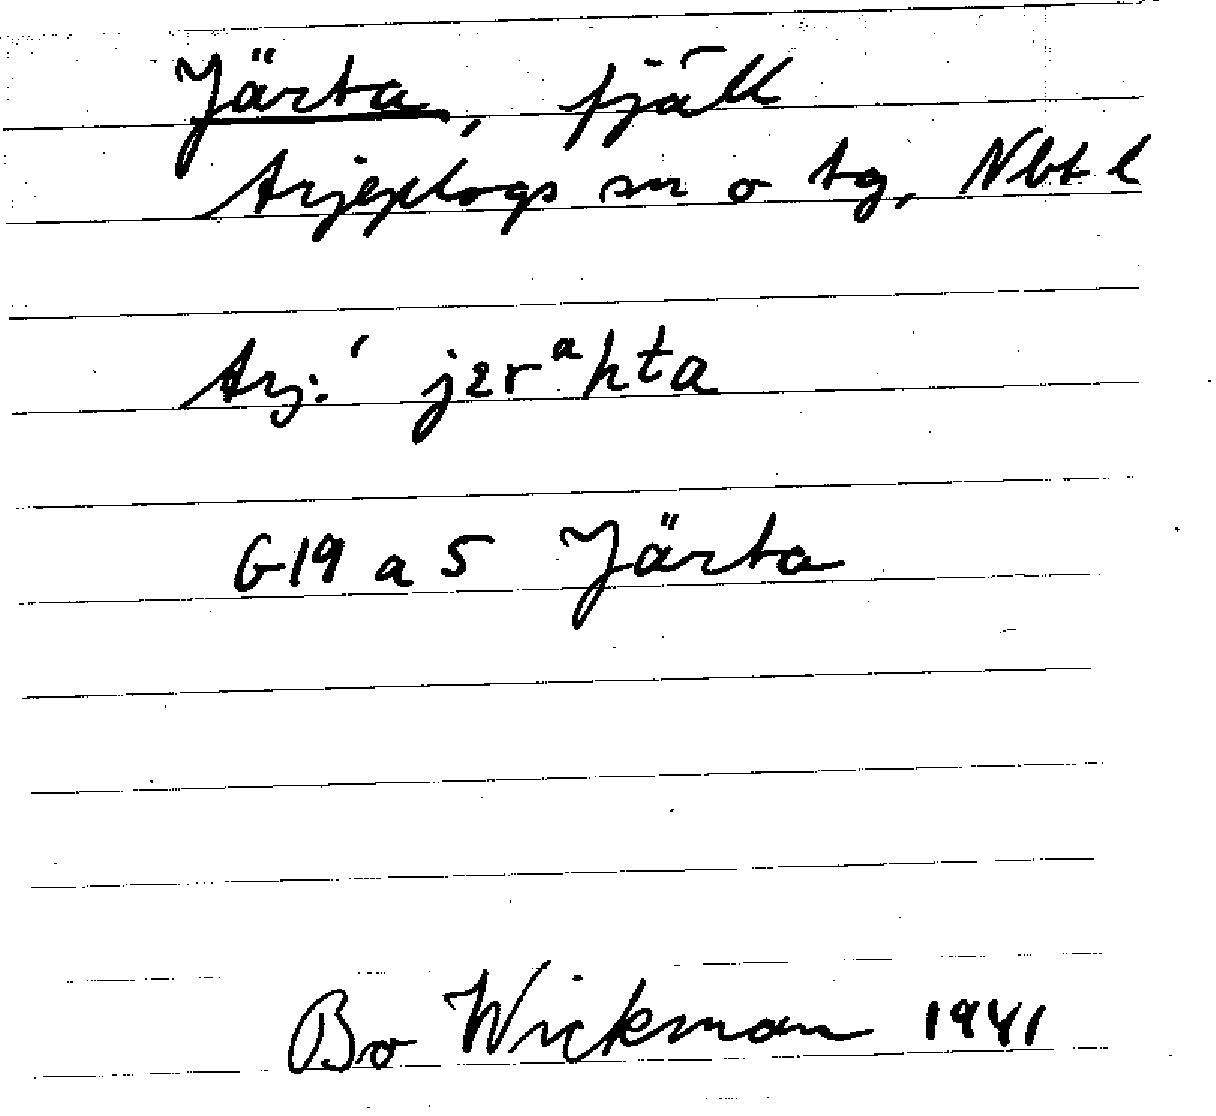 Järta, fjäll
Arjeplogs sn o tg, Nbt l
Arj: ' jɛrᵃhta
G19 a 5 Järta
Bo Wickman 1941